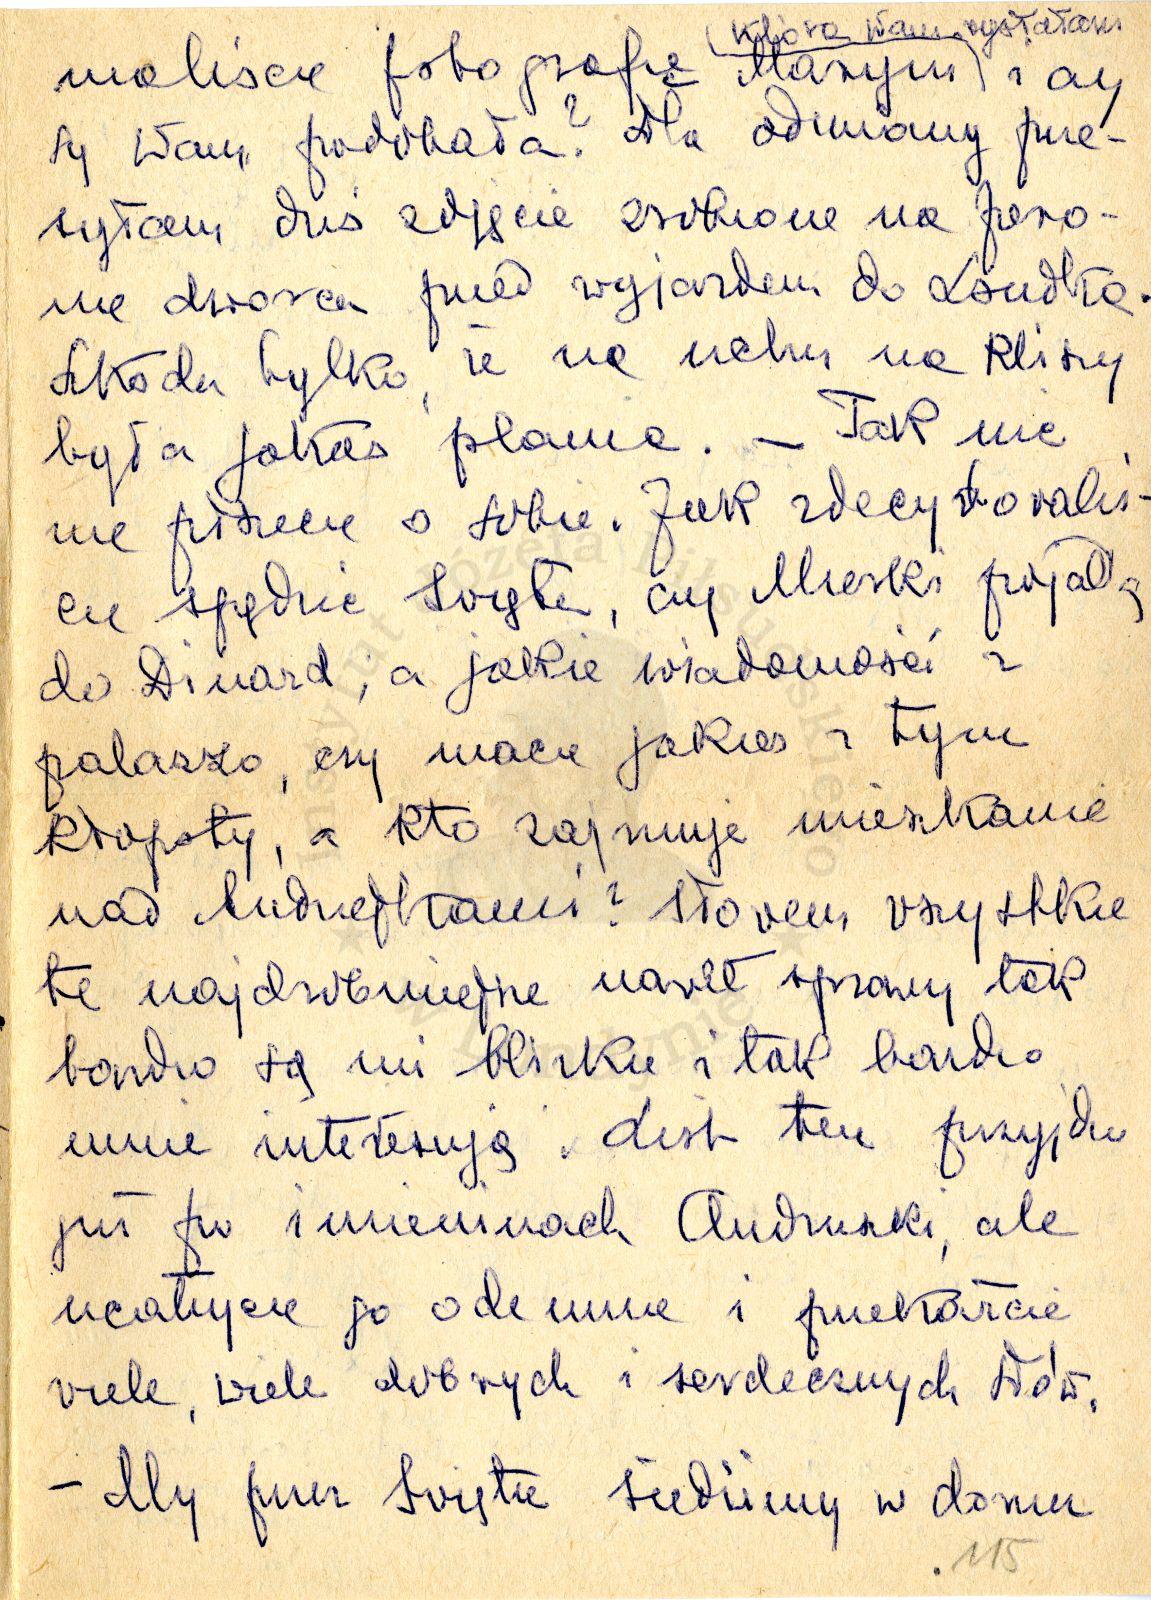 (którą Wam wysłałam
maliście fotografię Marysi) i czy
się Wam podobała? Dla odmiany prze-
syłam dziś zdjęcie zrobione na pero-
nie dworca przed wyjazdem do
Szkoda tylko, że na uchu na kliszy
była jakaś plama. – Tak nic
nie piszecie o sobie. Jak zdecydowaliś-
cie spędzić Święta, czy Mieski przyjadą
do Dinard, a jakie wiadomości z
palazzo, czy macie jakieś z tym
kłopoty, a kto zajmuje mieszkanie
nad Andrzejkami? Słowem wszystkie
te najdrobniejsze nawet sprawy tak
bardzo są mi bliskie i tak bardzo
mnie interesują. List ten przyjdzie
już po imieninach Andruszki, ale
ucałujcie go ode mnie i przekażcie
wiele, wiele dobrych i serdecznych słów.
– My przez Święta siedzimy w domu
115
Instytut Józefa Piłsudskiego
w Londynie